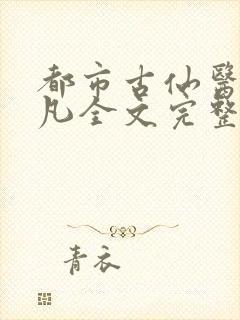 都市古仙醫
凡全文完整
青衣